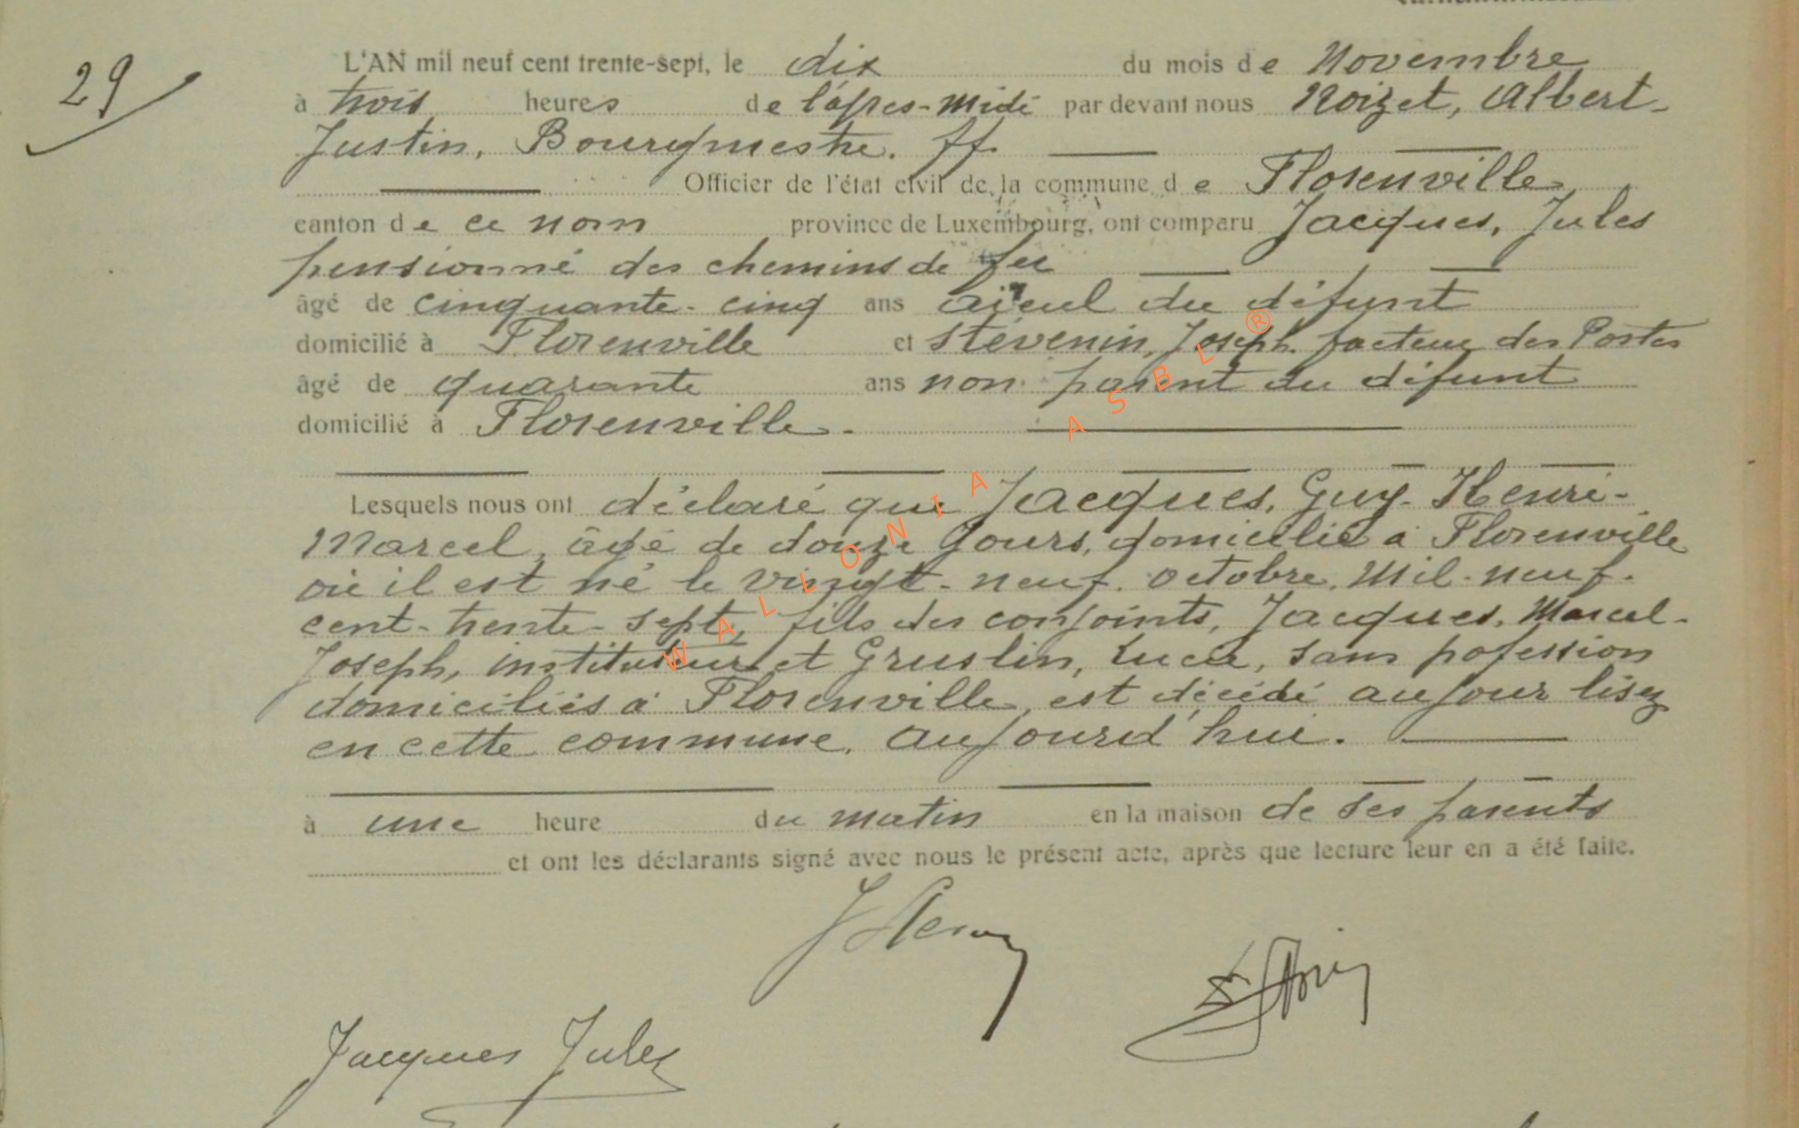 29
L'AN mil neuf cent trente-sept, le dix du mois de Novembre
à trois heures de l'après-midi par devant nous Noizet, Albert-
Justin, Bourgmestre. ff.
Officier de l'état civil de la commune de Florenville,
canton de ce nom province de Luxembourg, ont comparu Jacques, Jules
pensionné des chemins de fer
âgé de cinquante-cinq ans aïeul du défunt
domicilié à Florenville et Stévenin, Joseph. facteur des Postes
âgé de quarante ans non parent du défunt
domicilié à Florenville.
Lesquels nous ont déclaré que Jacques, Guy-Henri-
Marcel, âgé de douze jours, domicilié à Florenville
où il est né le vingt-neuf octobre, Mil-neuf-
cent-trente-sept, fils des conjoints, Jacques, Marcel-
Joseph, instituteur et Gruslin, Lucie, sans pofession
domiciliés à Florenville, est décédé aujour lisez
en cette commune, aujourd'hui.
à une heure du matin en la maison de ses parents
et ont les déclarants signé avec nous le présent acte, après que lecture leur en a été faite.
Jacques Jules
WALLONIA ASBL ®